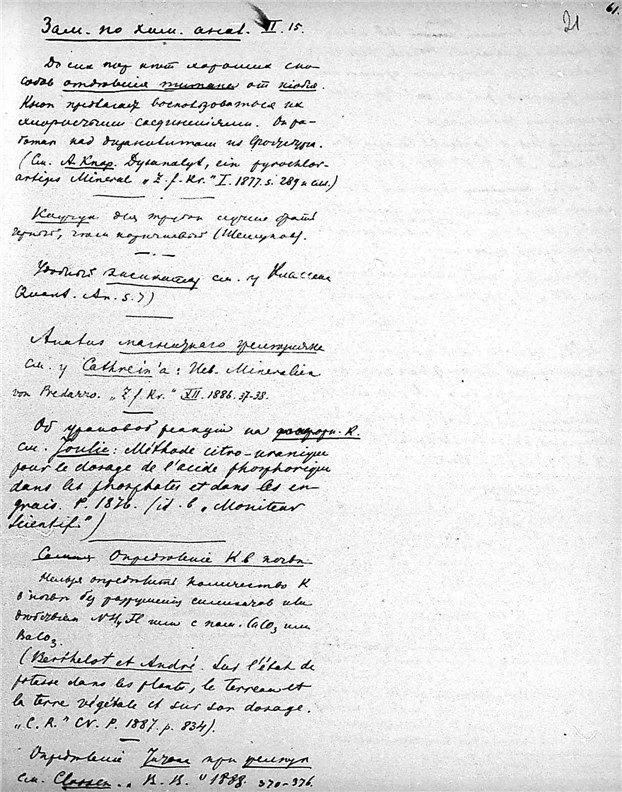 61.
21
Зам. по хим. анал. VI. 15.
До сих пор нет хороших спо-
собов отделения титана от ніобія.
Кноп предлагает воспользоваться их
хлористыми соединеніями. Он ра-
ботал над дизаналитом из
(См. A. Knop. Dysanalyt, ein pyrochlor-
artiges Mineral „Z. f. Kr." I. 1877. s. 289 и см.)
Каучук для трубок лучше
черный, чем коричневый (Шешуков).
Удобный см. у Классена
Quant. An. s. 7)
Анализ магнитного железняка
см. у Cathrein'а: Ueb. Mineralien
von Predazzo. „Z f Kr." XII. 1886. 37-38.
Об урановой реакции на фосфорн. к.
см. Joulie: Méthode citro-uranique
pour le dosage de l'acide phosphorique
dans les phosphates et dans les en-
grais. P. 1876. (id. в „Moniteur
Scientif.")
Определеніе К в почвах
Нельзя определить количество К
в почвах без разрушенія силикатов или
NH4 Fl или с пом. CaCO3 или
BaCO3
(Berthelot et André. Sur l'état de
potasse dans les plants, le terreau et
la terre végétale et sur son dosage.
„C. R." CV. P. 1887. p. 834).
Определеніе при
см. Classen. „B. B." 1888. 370-376.